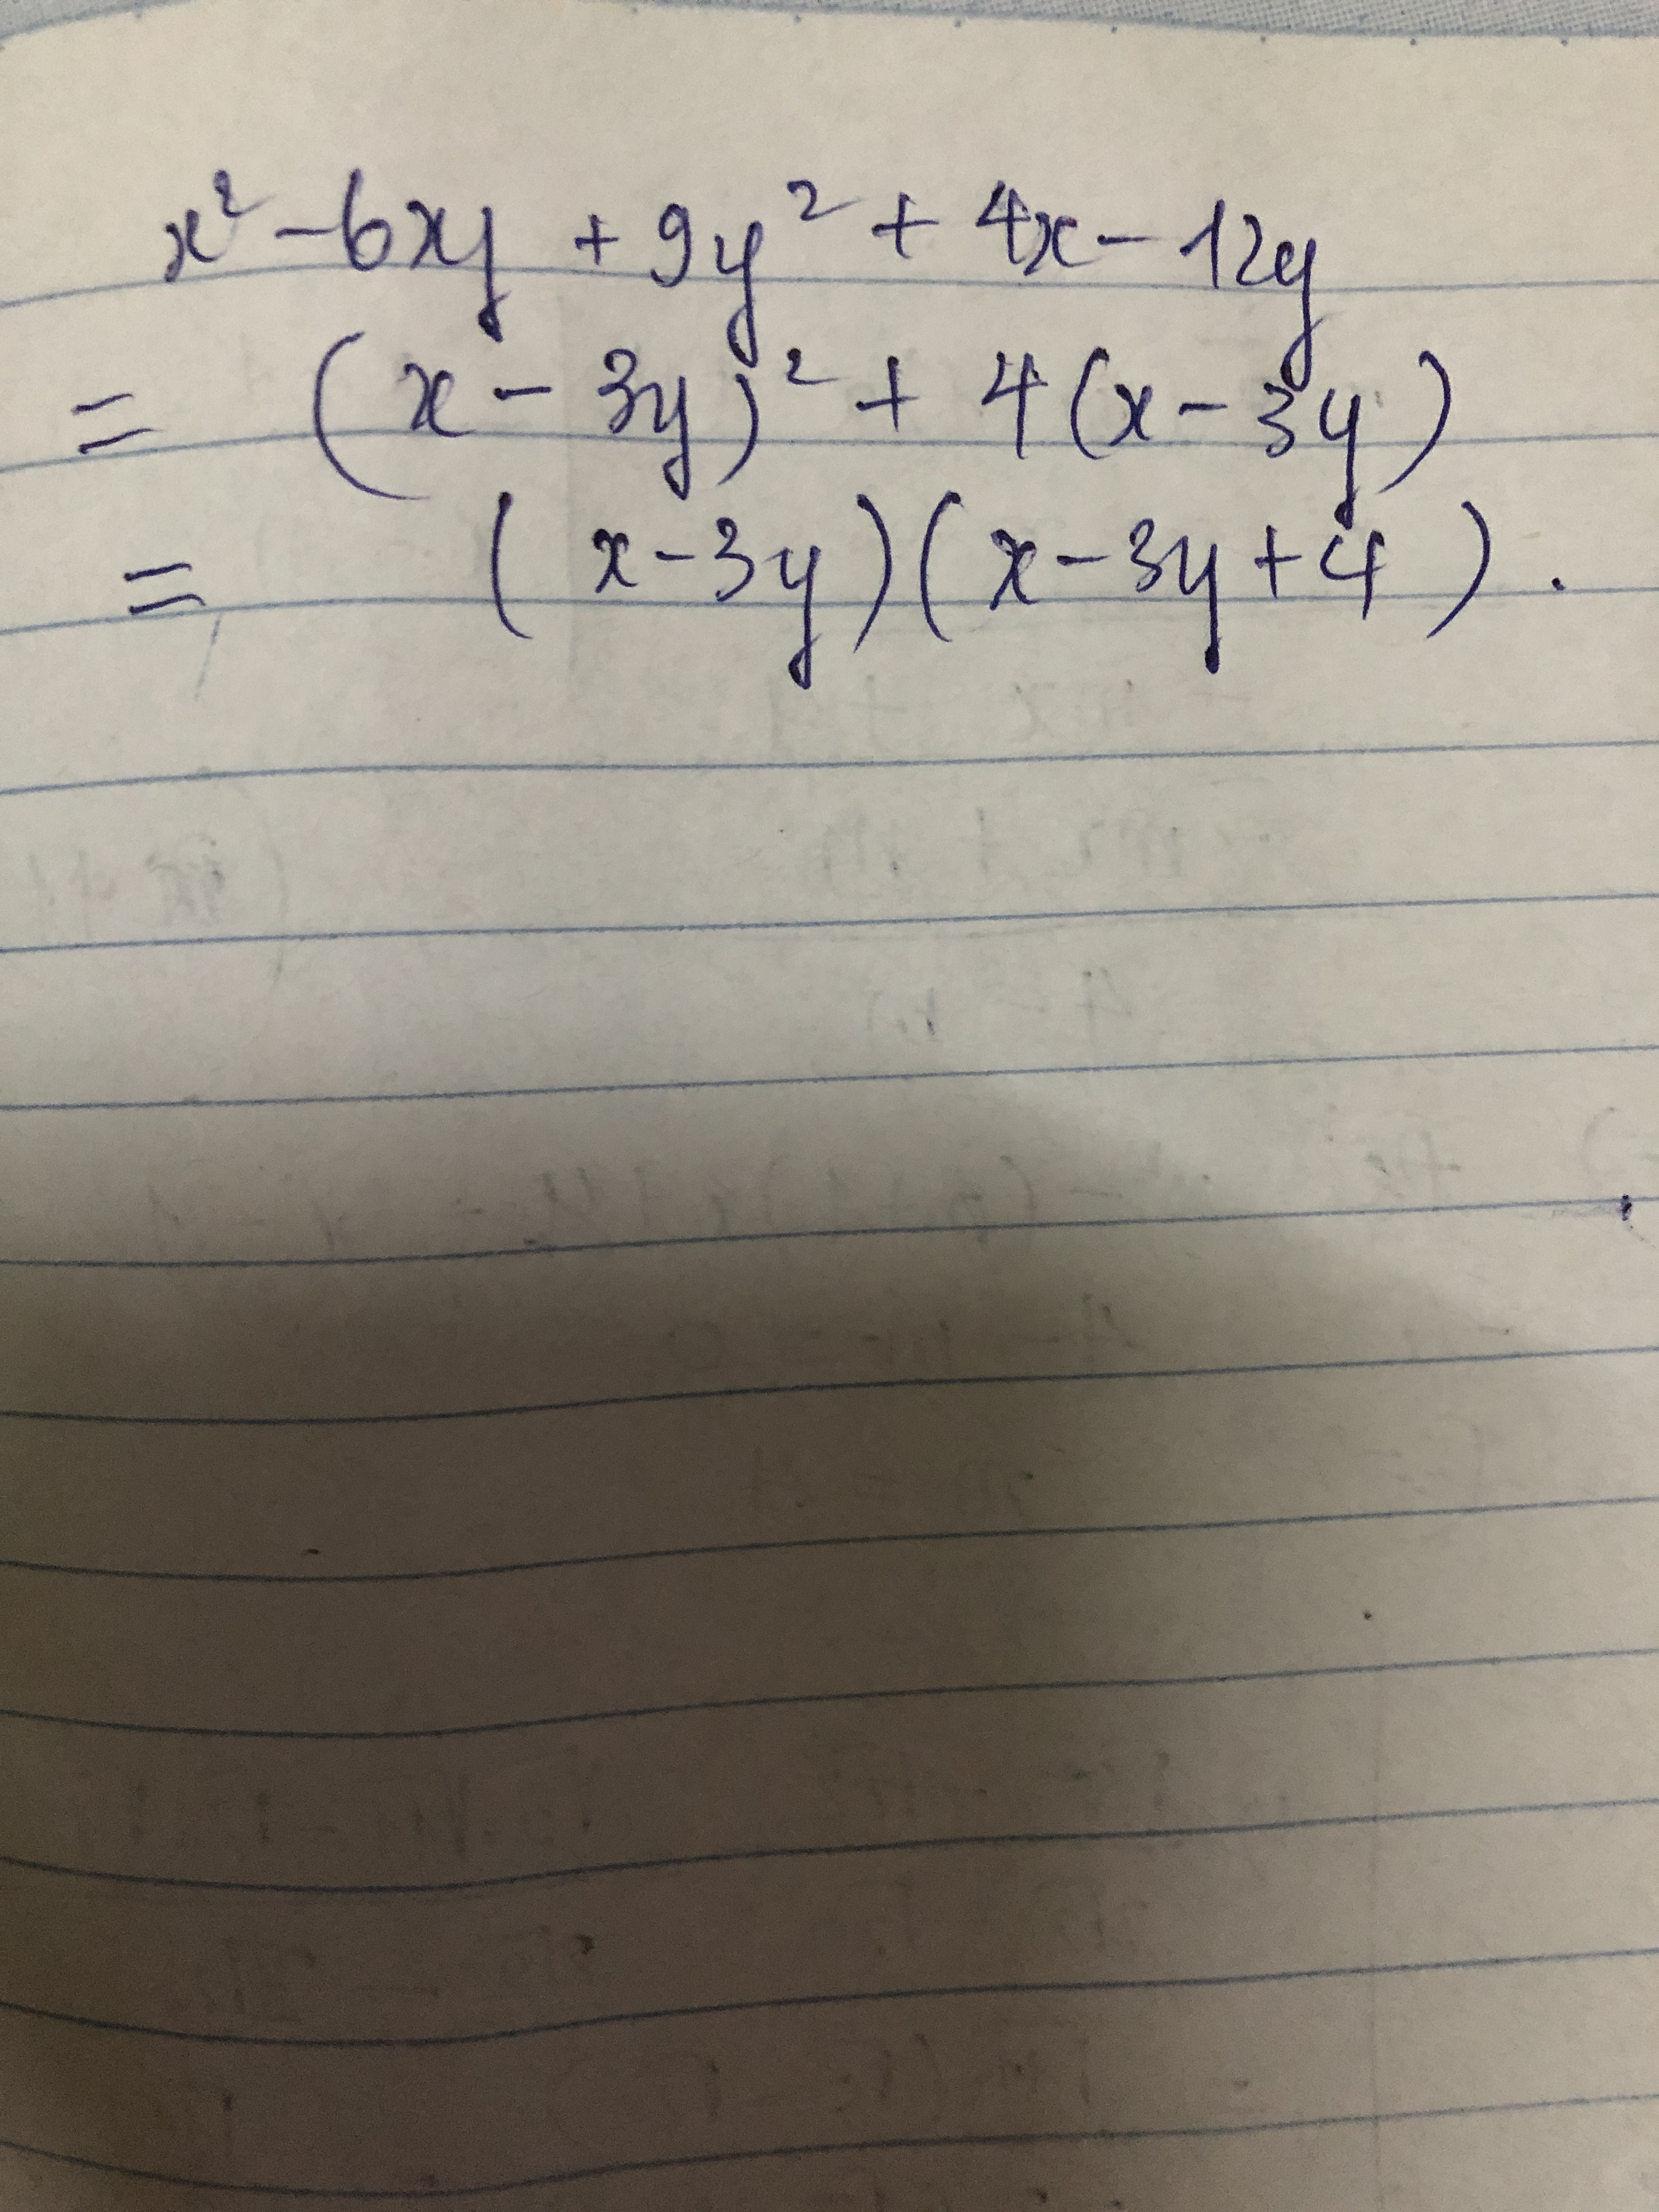 x² - 6xy + 9y² + 4x - 12y
= (x - 3y)² + 4(x - 3y)
= (x - 3y)(x - 3y + 4).